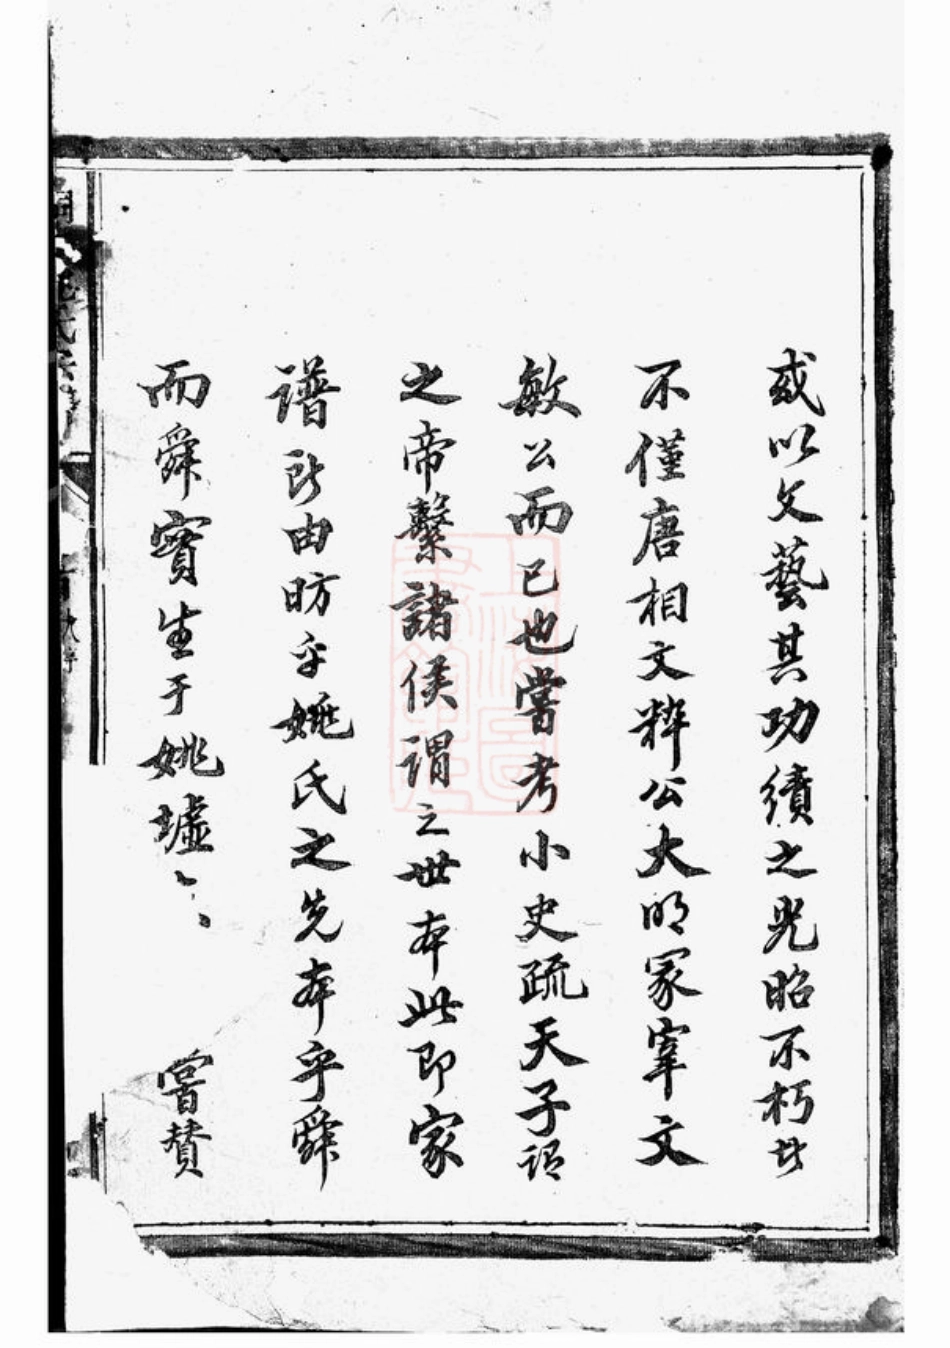 或以文藝其功績之光昭不朽者
不僅唐相文粹公大明冢宰文
敏公而已也嘗考小史疏天子謂
之帝繫諸侯謂之世本此即家
譜所由昉乎姚氏之先本乎舜
而舜實生于姚墟
嘗贊
上海圖
書館藏